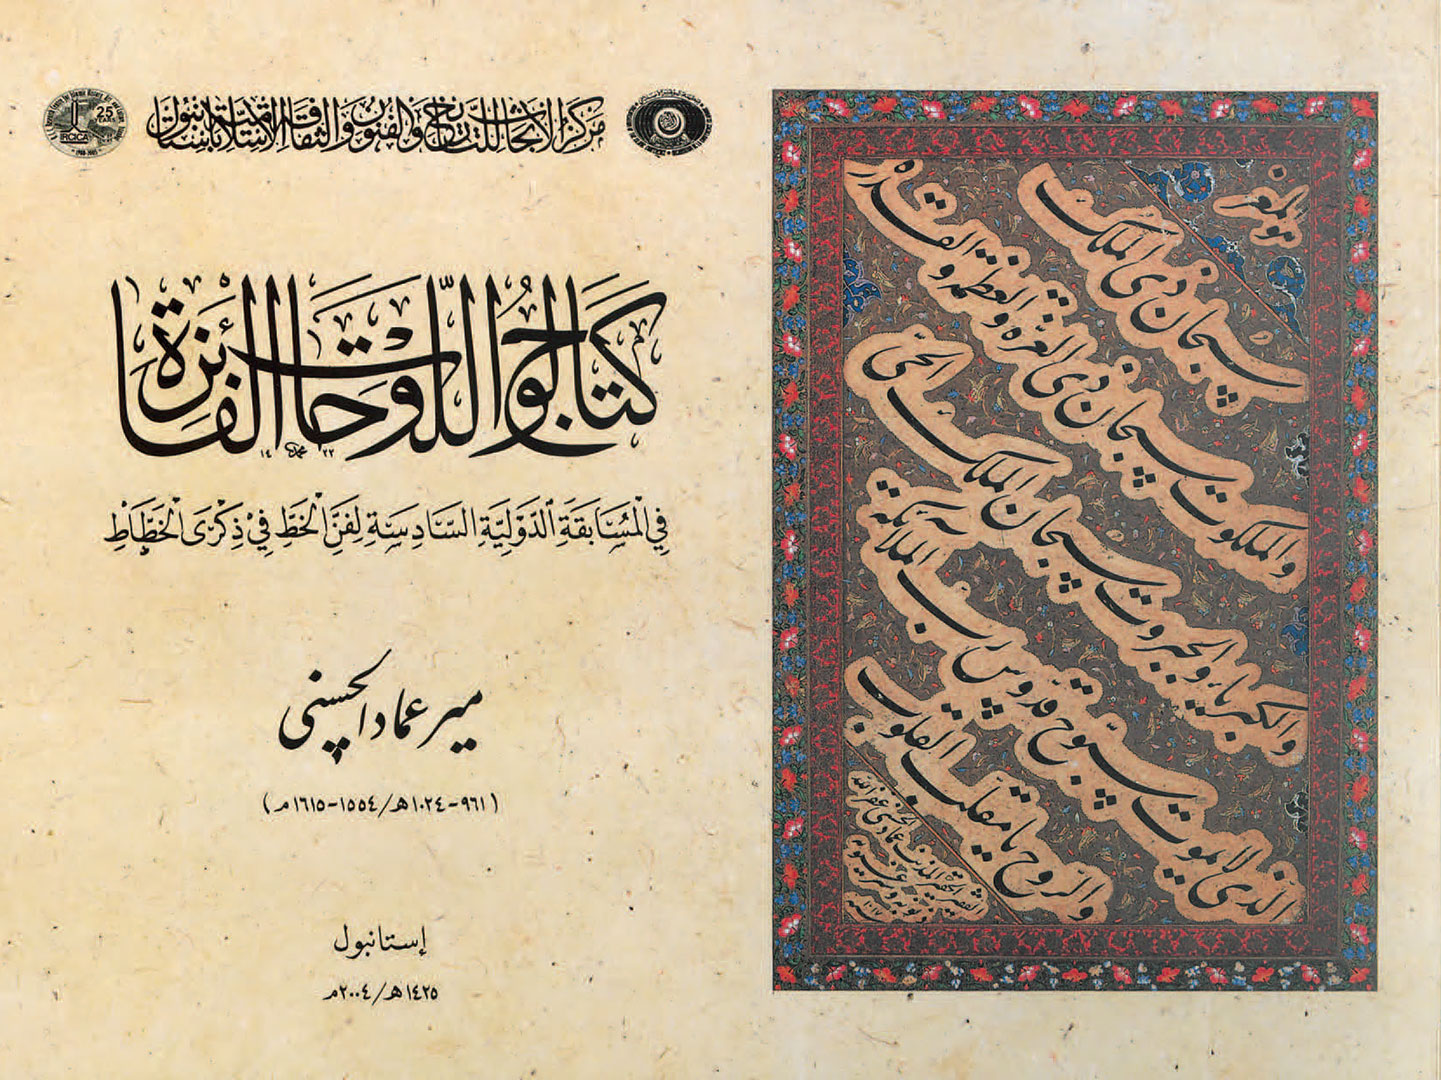 مركز الأبحاث للتاريخ والفنون والثقافة الإسلامية باستانبول
IRCICA
25
كتالوج اللوحات الفائزة
في المسابقة الدولية السادسة لفن الخط في ذكرى الخطاط
مير عماد الحسني
(٩٦١-١٠٢٤ھ/١٥٥٤-١٦١٥م)
إستانبول
١٤٢٥ھ/٢٠٠٤م
هو المعز
سبحان ذي الملك
والملكوت سبحان ذي العزة والعظمة والقدرة
والكبرياء والجبروت سبحان الملك الحي
الذي لا يموت سبوح قدوس رب الملائكة
والروح يا مقلب القلوب
الفقير الحقير المذنب عماد الحسني غفر الله
ذنوبه وستر عيوبه
١٠١٧